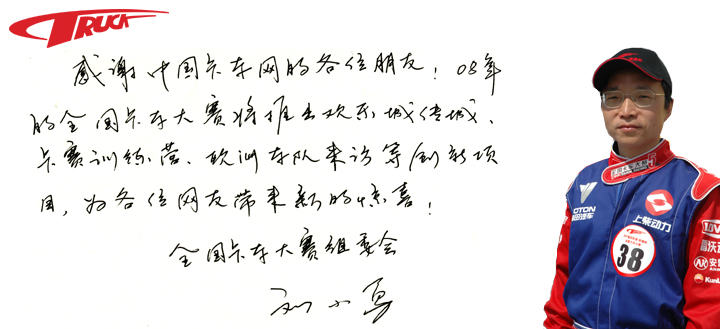 TRUCK
感谢中国卡车网的各位朋友！08年
的全国卡车大赛将推出欢乐城传城、
卡赛训练营、欧洲车队来访等创新项
目，为各位网友带来新的惊喜！
全国卡车大赛组委会
OTON
田汽车
上柴动力
38
KunL